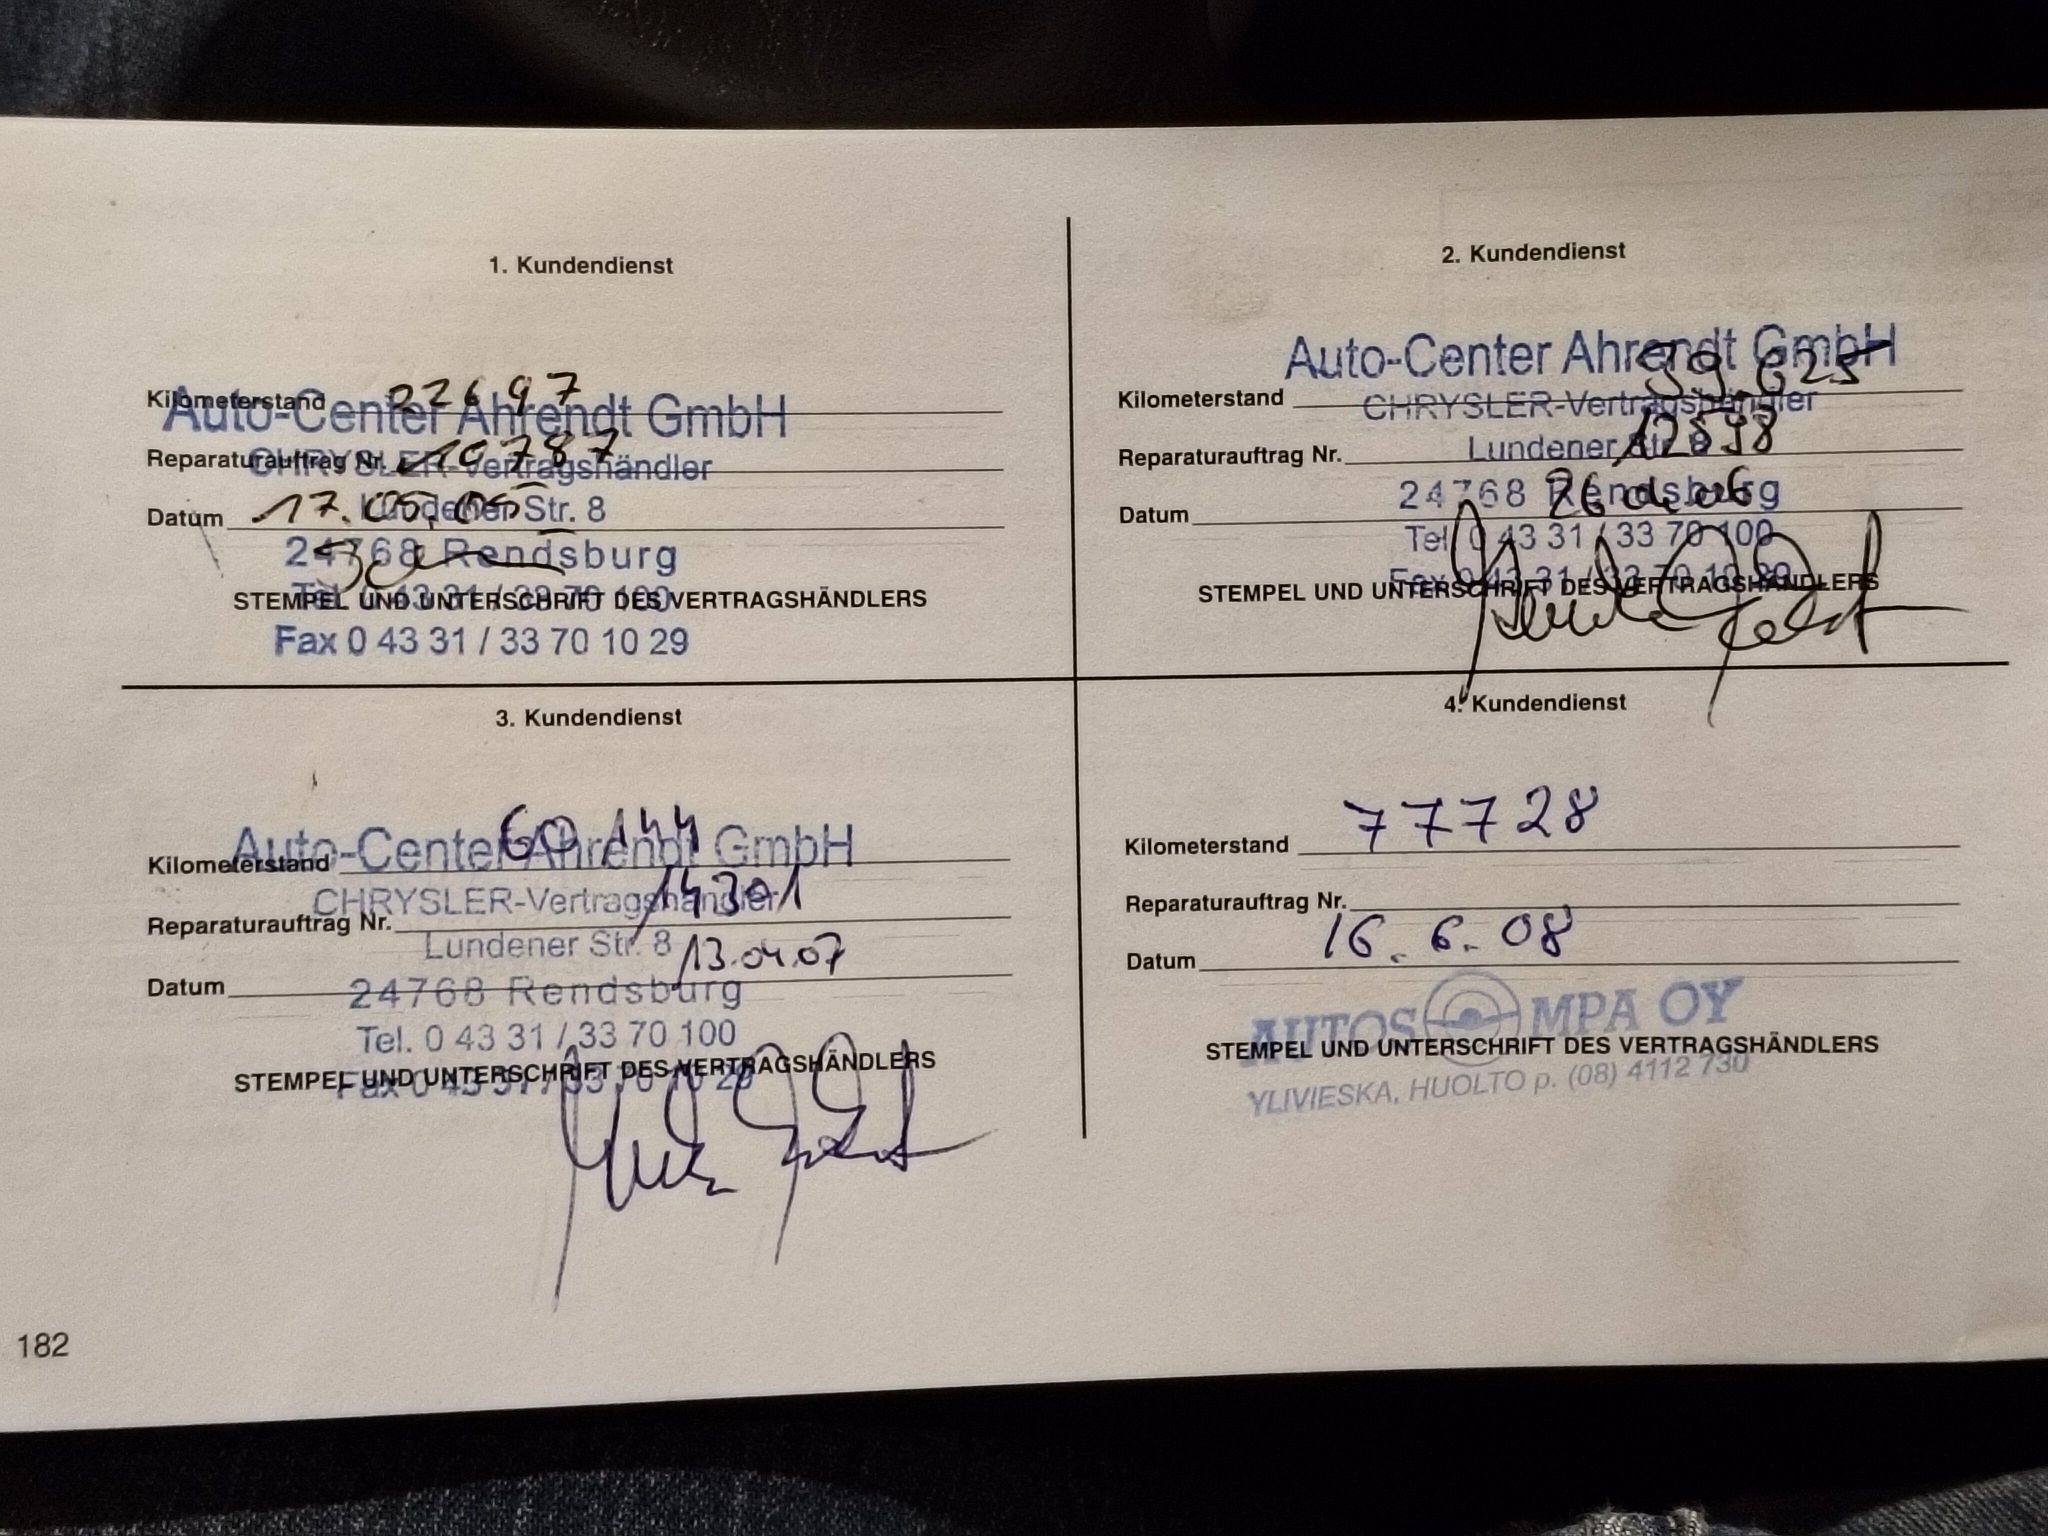 1. Kundendienst
Kilometerstand 22697
Auto-Center Ahrendt GmbH
Reparaturauftrag Nr. 10787
CHRYSLER-Vertragshändler
Datum 17.05.05
Lundener Str. 8
24768 Rendsburg
Tel. 0 43 31 / 33 70 100
STEMPEL UND UNTERSCHRIFT DES VERTRAGSHÄNDLERS
Fax 0 43 31 / 33 70 10 29
2. Kundendienst
Auto-Center Ahrendt GmbH
Kilometerstand 39.625
CHRYSLER-Vertragshändler
Reparaturauftrag Nr. 12598
Lundener Str. 8
24768 Rendsburg
Datum 26.04.06
Tel. 0 43 31 / 33 70 100
Fax 0 43 31 / 33 70 10 29
STEMPEL UND UNTERSCHRIFT DES VERTRAGSHÄNDLERS
3. Kundendienst
Auto-Center Ahrendt GmbH
Kilometerstand 60 144
CHRYSLER-Vertragshändler
Reparaturauftrag Nr. 14301
Lundener Str. 8
Datum 13.04.07
24768 Rendsburg
Tel. 0 43 31 / 33 70 100
STEMPEL UND UNTERSCHRIFT DES VERTRAGSHÄNDLERS
Fax 0 43 31 / 33 70 10 29
4. Kundendienst
Kilometerstand 77728
Reparaturauftrag Nr.
Datum 16.6.08
AUTOSOMPA OY
STEMPEL UND UNTERSCHRIFT DES VERTRAGSHÄNDLERS
YLIVIESKA, HUOLTO p. (08) 4112 730
182